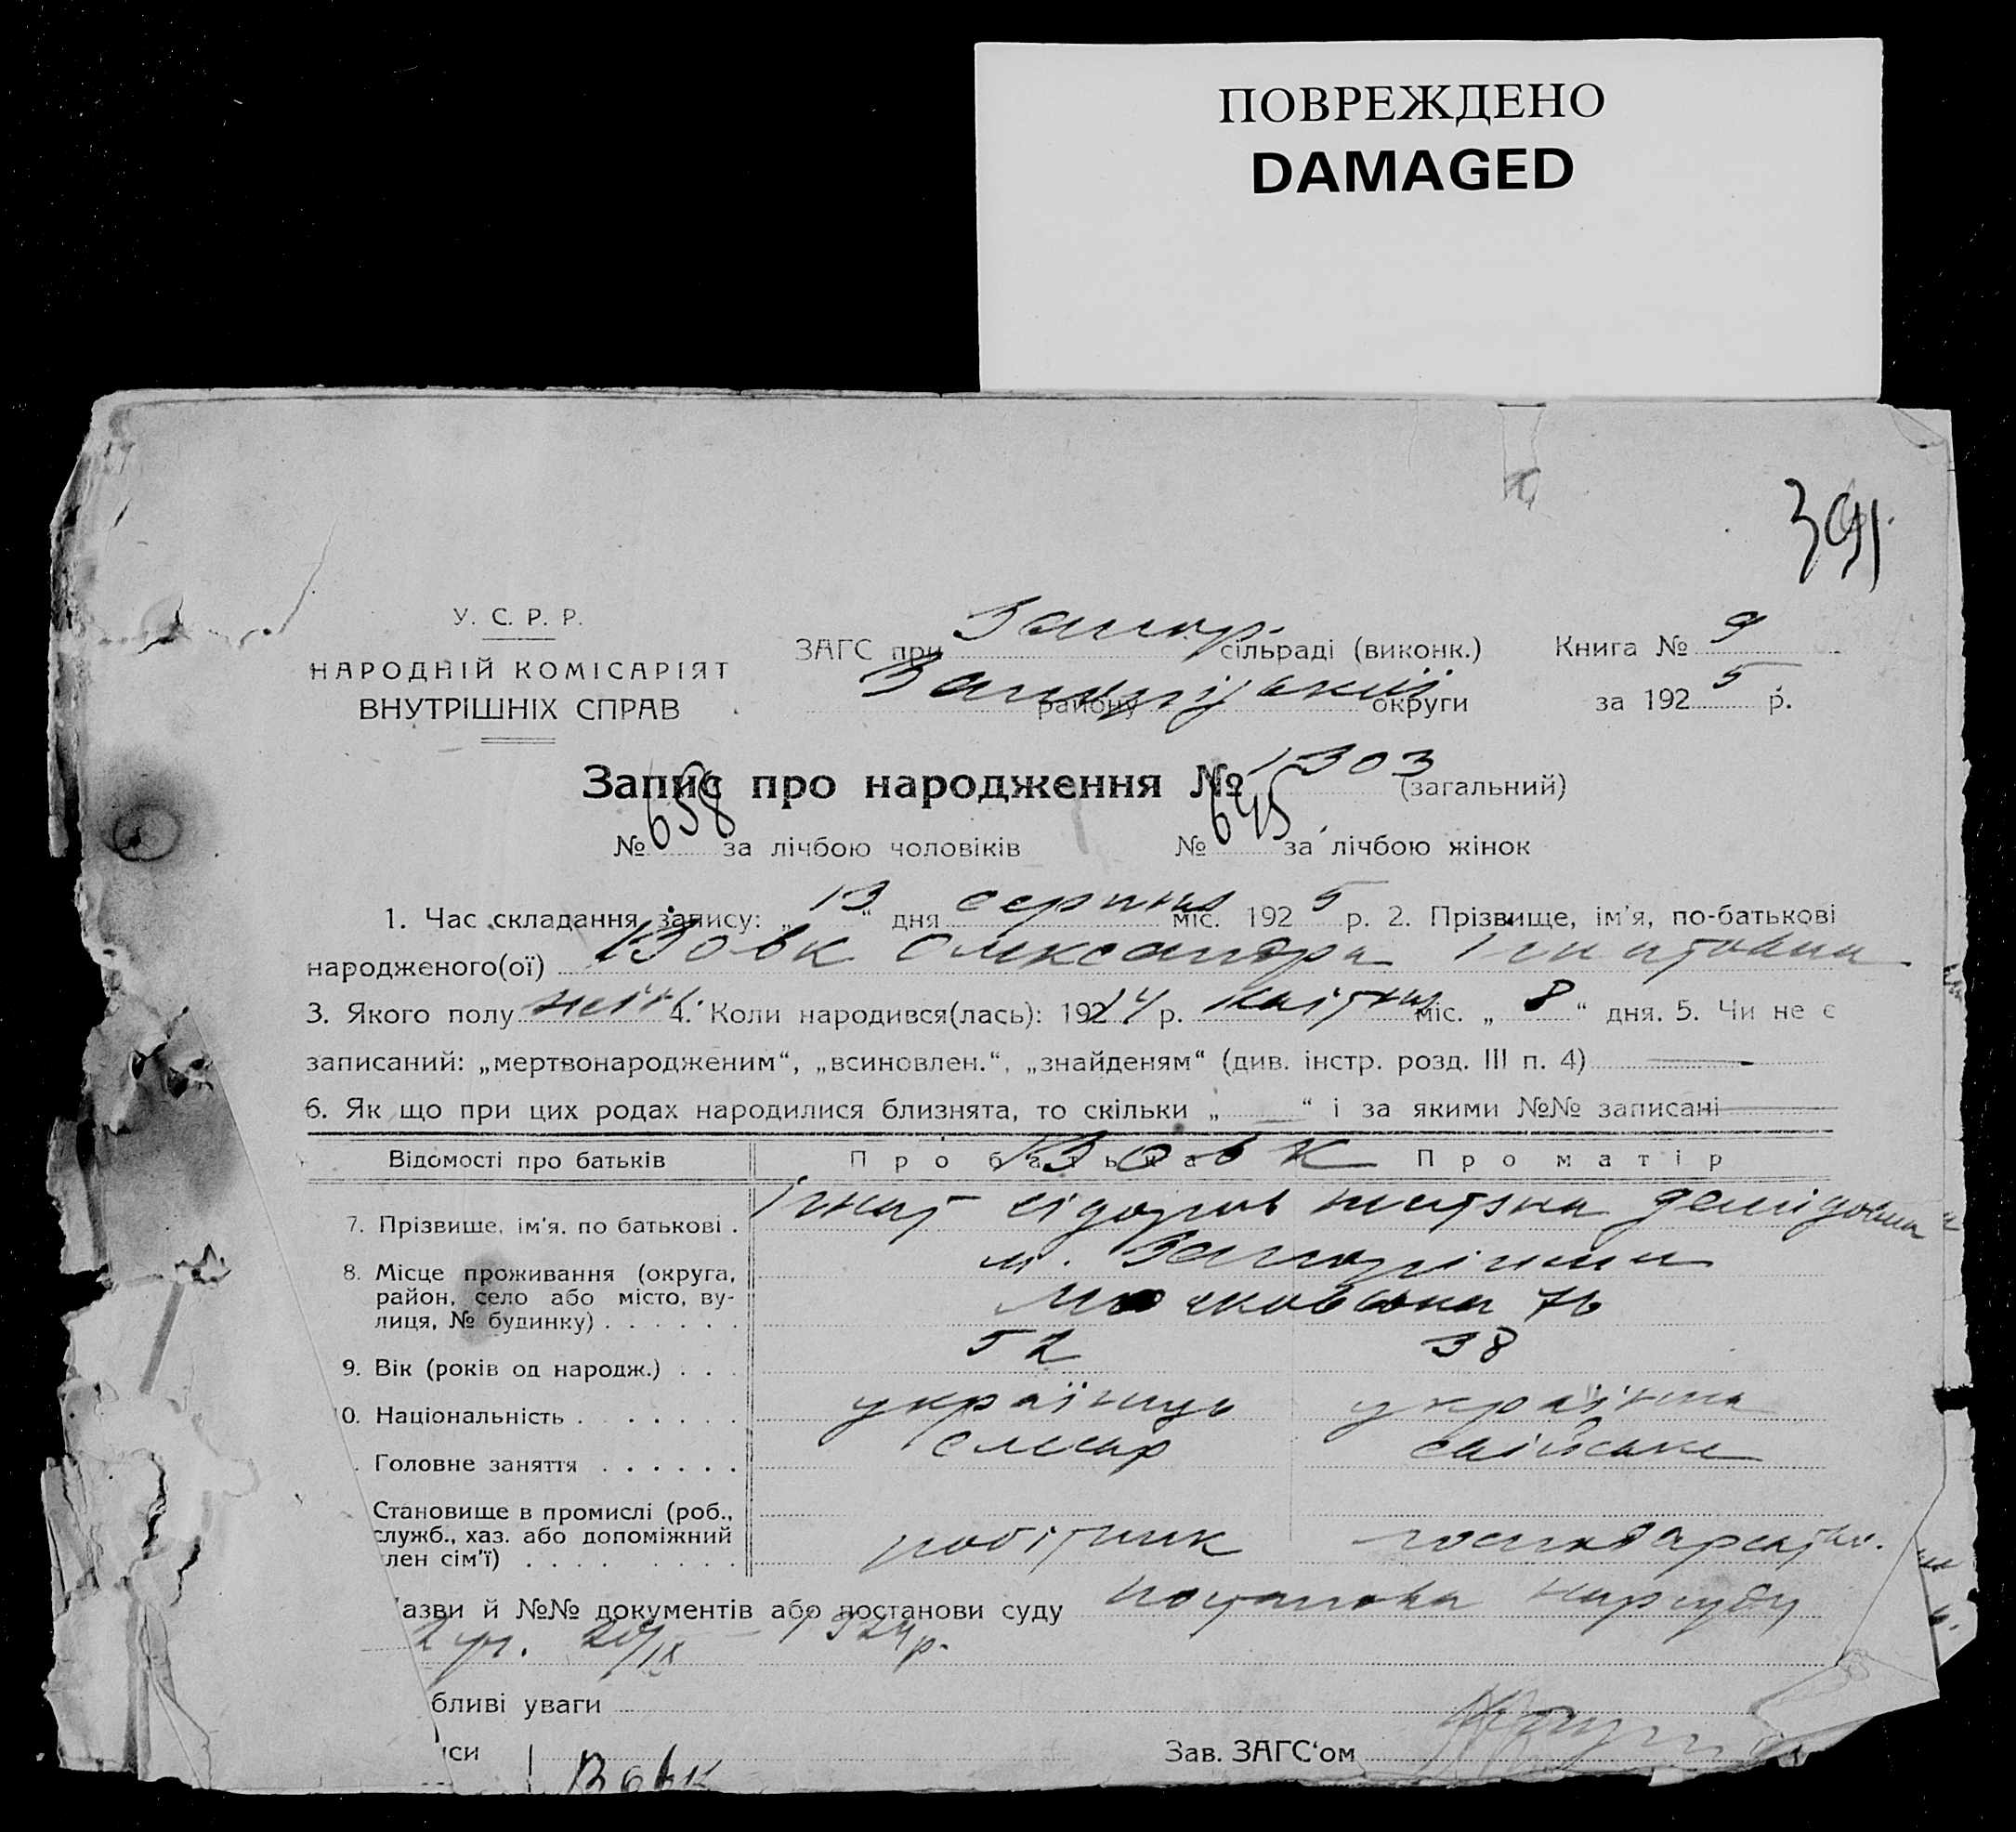 ПОВРЕЖДЕНО
DAMAGED
391
У. С. Р. Р.
НАРОДНІЙ КОМІСАРІЯТ
ВНУТРІШНІХ СПРАВ
ЗАГС при Запор. сільраді (виконк.) Книга № 9
району округи за 192 5 р.
Запис про народження № 1303 (загальний)
№ 658 за лічбою чоловіків № 645 за лічбою жінок
1. Час складання запису: „ 13 “ дня серпня міс. 192 5 р. 2. Прізвище, ім’я, по-батькові
народженого(ої) Вовк Олександра Ігнатовна
3. Якого полу жін. 4. Коли народився(лась): 192 14 р. квітня міс. „ 8 “ дня. 5. Чи не є
записаний: „мертвонародженим“, „всиновлен.“, „знайденям“ (див. інстр. розд. III п. 4)
6. Як що при цих родах народилися близнята, то скільки „ “ і за якими №№ записані
Відомості про батьків Про батька Вовк Про матір
7. Прізвише, ім’я, по батькові . Ігнат Сідоров Демідовна
8. Місце проживання (округа, м. Запоріжжя
район, село або місто, ву-
лиця, № будинку) . . . . . . 76
9. Вік (років од народж.) . . . 52 38
0. Національність . . . . . . . українець українка
. Головне заняття . . . . . . слюсар сійське
Становище в промислі (роб.,
служб., хаз. або допоміжний
лен сім’ї) . . . . . . . . . робітник господарство.
азви й №№ документів або постанови суду постанова нарсуду
2 уч. 1924р.
бливі уваги
си Вовк Зав. ЗАГС‘ом